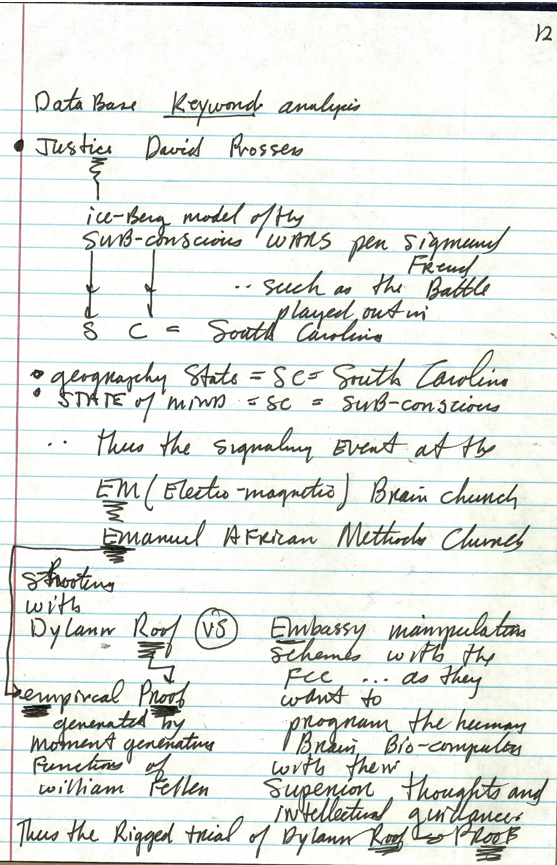 12
DataBase Keyword analysis
• Justice David Prosser
ice-Berg model of the
SUB-conscious WARS per Sigmund
Freud
.. such as the Battle
played out in
S C = South Carolina
• geography State = SC = South Carolina
• STATE of MIND = SC = SUB-conscious
.. Thus the signaling EVENT at the
EM (Electro-magnetic) Brain church
Emanuel AFRICAN Methods Church
Shooting
with
Dylann Roof VS
empirical Proof
generated by
moment generating
Function of
William Feller
Embassy manipulation
schemes with the
FCC ... as they
want to
program the human
Brain Bio-computer
with their
Superior thoughts and
intellectual guidance
Thus the Rigged trial of Dylann Roof → PROOF